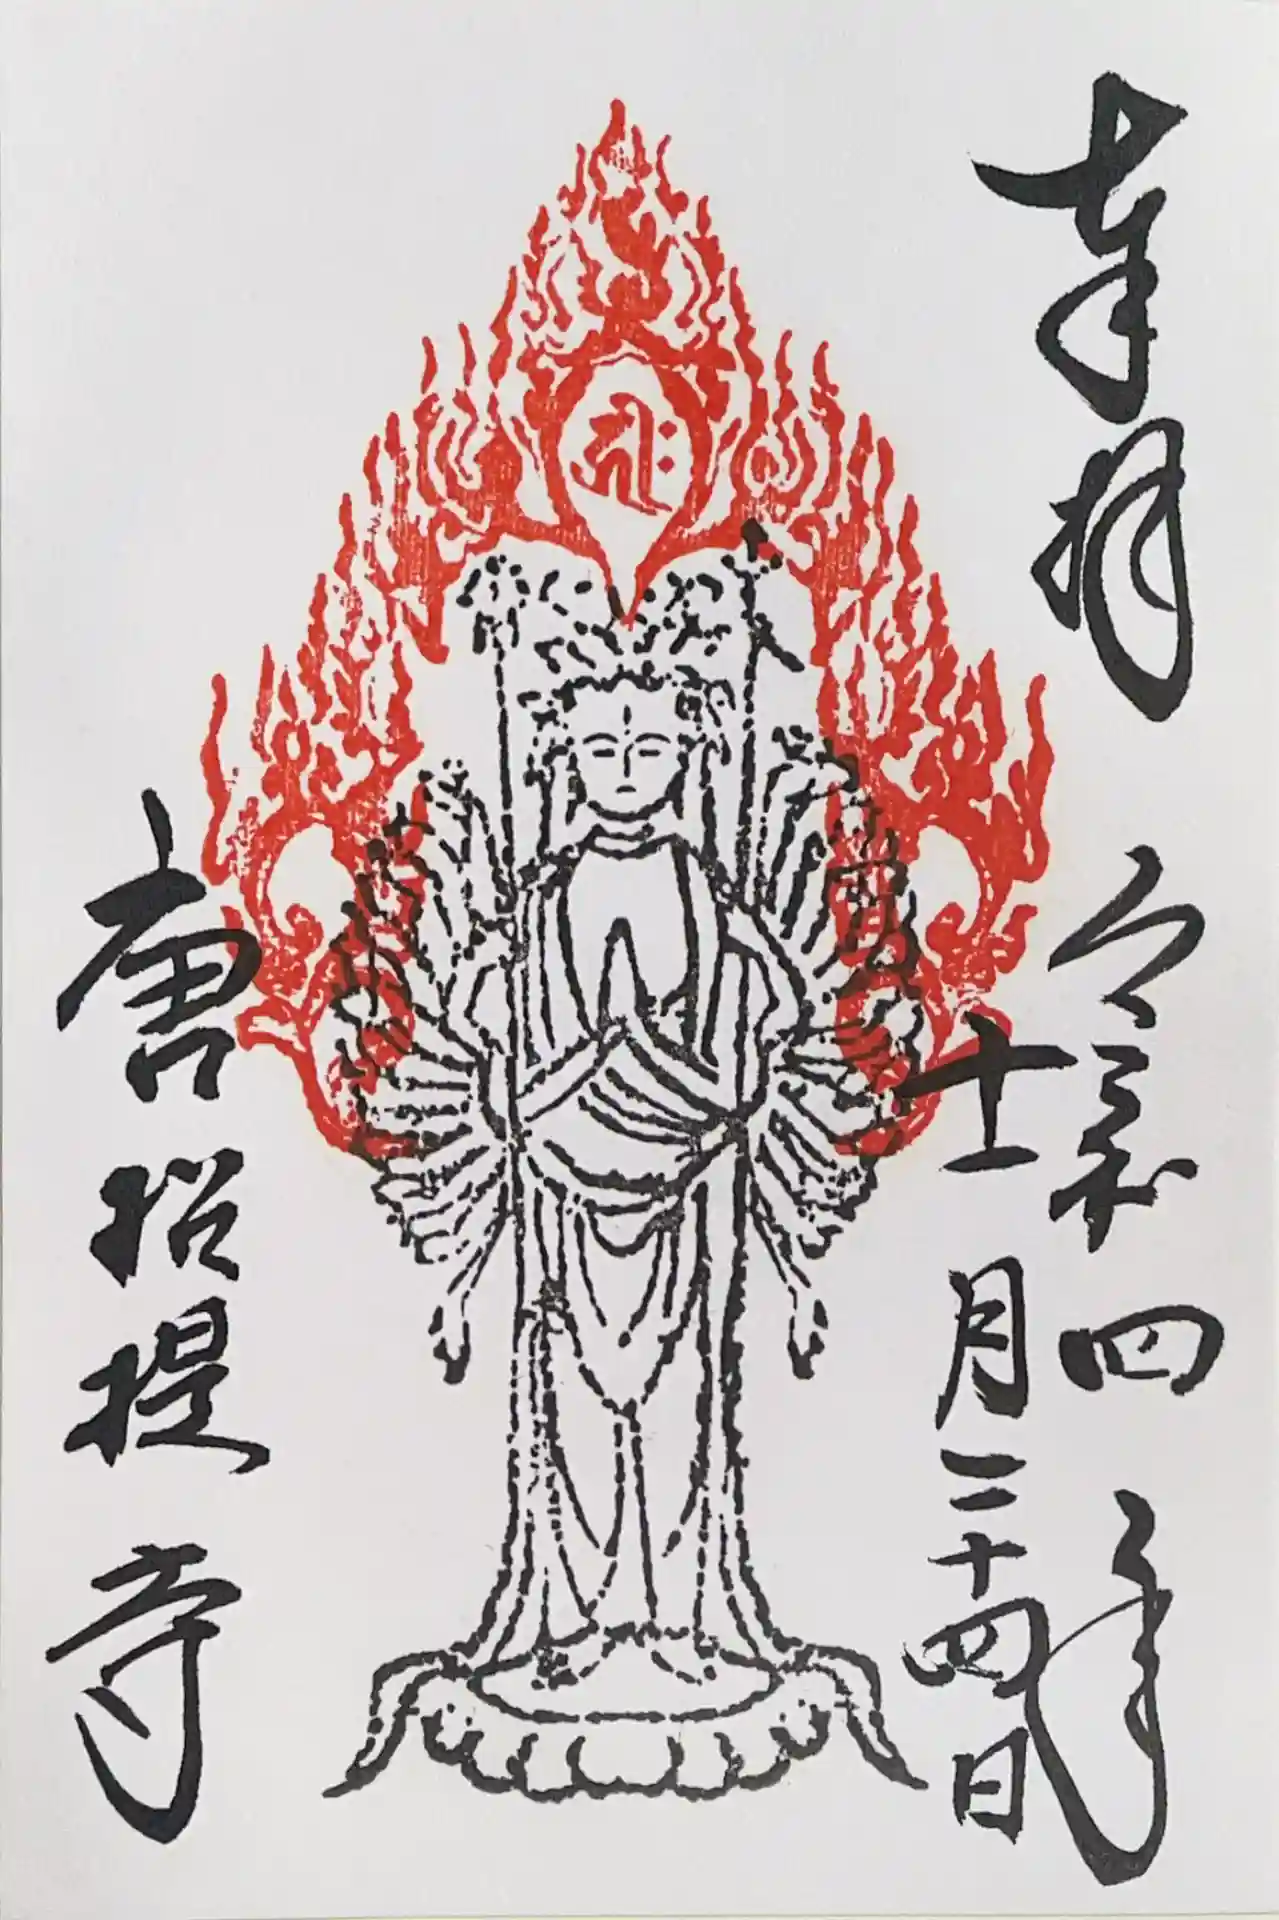 𑖮𑖿𑖨𑖱𑖾
奉拝 令和四年
十一月二十四日
唐招提寺